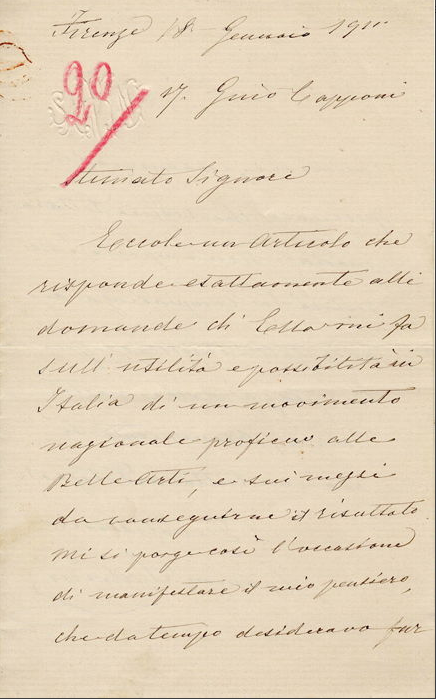 Firenze 18 Gennaio 19
20
17. Gino Capponi
Stimato Signore
Eccole un articolo che
risponde esattamente alle
domande di Ella mi fa
sull'utilità e possibilità in
Italia di un movimento
nazionale proficuo alle
Belle Arti, e sui mezzi
da conseguirne il risultato
Mi si porge così l'occasione
di manifestare il mio pensiero,
che da tempo desideravo far